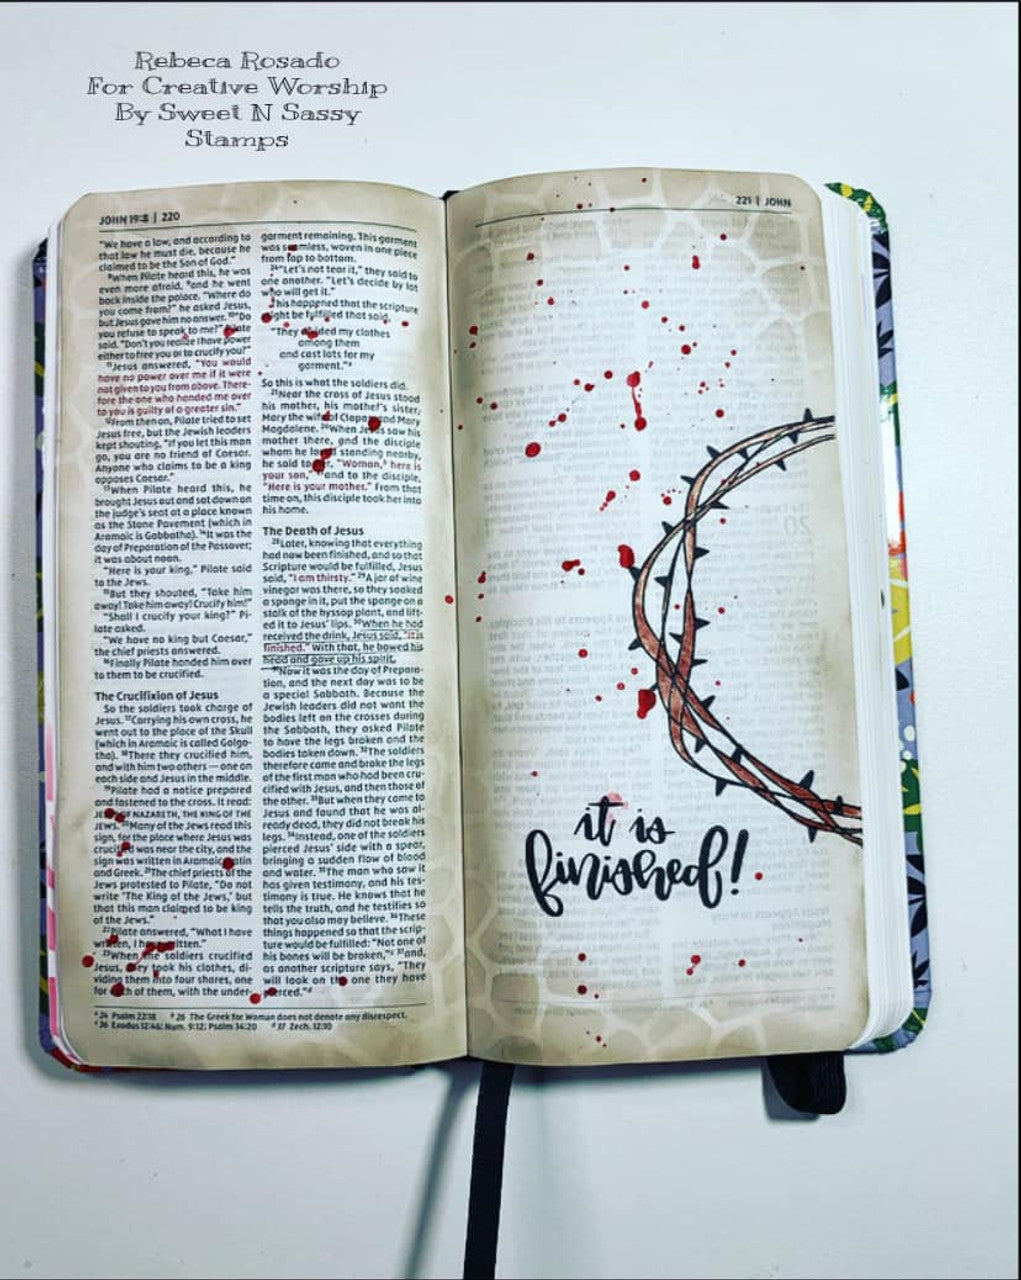 Rebeca Rosado
For Creative Worship
By Sweet N Sassy
Stamps
JOHN 19:8 | 220
"We have a law, and according to
that law he must die, because he
claimed to be the Son of God."
⁸When Pilate heard this, he was
even more afraid, ⁹and he went
back inside the palace. "Where do
you come from?" he asked Jesus,
but Jesus gave him no answer. ¹⁰"Do
you refuse to speak to me?" Pilate
said. "Don't you realize I have power
either to free you or to crucify you?"
¹¹Jesus answered, "You would
have no power over me if it were
not given to you from above. There-
fore the one who handed me over
to you is guilty of a greater sin."
¹²From then on, Pilate tried to set
Jesus free, but the Jewish leaders
kept shouting, "If you let this man
go, you are no friend of Caesar.
Anyone who claims to be a king
opposes Caesar."
¹³When Pilate heard this, he
brought Jesus out and sat down on
the judge's seat at a place known
as the Stone Pavement (which in
Aramaic is Gabbatha). ¹⁴It was the
day of Preparation of the Passover;
it was about noon.
"Here is your king," Pilate said
to the Jews.
¹⁵But they shouted, "Take him
away! Take him away! Crucify him!"
"Shall I crucify your king?" Pi-
late asked.
"We have no king but Caesar,"
the chief priests answered.
¹⁶Finally Pilate handed him over
to them to be crucified.
The Crucifixion of Jesus
So the soldiers took charge of
Jesus. ¹⁷Carrying his own cross, he
went out to the place of the Skull
(which in Aramaic is called Golgo-
tha). ¹⁸There they crucified him,
and with him two others — one on
each side and Jesus in the middle.
¹⁹Pilate had a notice prepared
and fastened to the cross. It read:
OF NAZARETH, THE KING OF THE
JEWS. ²⁰Many of the Jews read this
sign, for the place where Jesus was
crucified was near the city, and the
sign was written in Aramaic, Latin
and Greek. ²¹The chief priests of the
Jews protested to Pilate, "Do not
write 'The King of the Jews,' but
that this man claimed to be king
of the Jews."
²²Pilate answered, "What I have
written, I have written."
²³When the soldiers crucified
Jesus, they took his clothes, di-
viding them into four shares, one
for each of them, with the under-
garment remaining. This garment
was seamless, woven in one piece
from top to bottom.
²⁴"Let's not tear it," they said to
one another. "Let's decide by lot
who will get it."
This happened that the scripture
might be fulfilled that said,
"They divided my clothes
among them
and cast lots for my
garment."ᵃ
So this is what the soldiers did.
²⁵Near the cross of Jesus stood
his mother, his mother's sister,
Mary the wife of Clopas, and Mary
Magdalene. ²⁶When Jesus saw his
mother there, and the disciple
whom he loved standing nearby,
he said to her, "Woman,ᵇ here is
your son," ²⁷and to the disciple,
"Here is your mother." From that
time on, this disciple took her into
his home.
The Death of Jesus
²⁸Later, knowing that everything
had now been finished, and so that
Scripture would be fulfilled, Jesus
said, "I am thirsty." ²⁹A jar of wine
vinegar was there, so they soaked
a sponge in it, put the sponge on a
stalk of the hyssop plant, and lift-
ed it to Jesus' lips. ³⁰When he had
received the drink, Jesus said, "It is
finished." With that, he bowed his
head and gave up his spirit.
³¹Now it was the day of Prepara-
tion, and the next day was to be
a special Sabbath. Because the
Jewish leaders did not want the
bodies left on the crosses during
the Sabbath, they asked Pilate
to have the legs broken and the
bodies taken down. ³²The soldiers
therefore came and broke the legs
of the first man who had been cru-
cified with Jesus, and then those of
the other. ³³But when they came to
Jesus and found that he was al-
ready dead, they did not break his
legs. ³⁴Instead, one of the soldiers
pierced Jesus' side with a spear,
bringing a sudden flow of blood
and water. ³⁵The man who saw it
has given testimony, and his tes-
timony is true. He knows that he
tells the truth, and he testifies so
that you also may believe. ³⁶These
things happened so that the scrip-
ture would be fulfilled: "Not one of
his bones will be broken,"ᶜ ³⁷and,
as another scripture says, "They
will look on the one they have
pierced."ᵈ
ᵃ24 Psalm 22:18 ᵇ26 The Greek for Woman does not denote any disrespect.
ᶜ36 Exodus 12:46; Num. 9:12; Psalm 34:20 ᵈ37 Zech. 12:10
221 | JOHN
it is
finished!